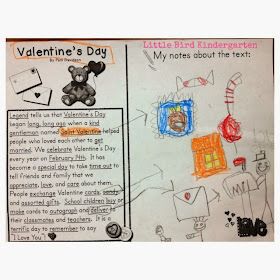 Valentine's Day
By Patti Davidson
Legend tells us that Valentine's Day
began long, long ago when a kind
gentleman named Saint Valentine helped
people who loved each other to get
married. We celebrate Valentine's Day
every year on February 14th. It has
become a special day to take time out to
tell friends and family that we
appreciate, love, and care about them.
People exchange Valentine cards, candy
and assorted gifts. School children buy or
make cards to autograph and deliver to
their classmates and teachers. It is a
terrific day to remember to say
"I Love You"
Little Bird Kindergarten
My notes about the text:
LOVE